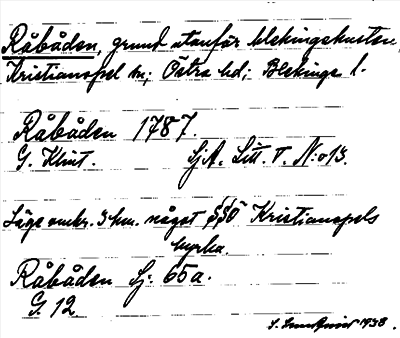 Råbåden, grund utanför blekingskusten,
Kristianopel sn; Östra hd; Blekinge l.
Råbåden 1787.
G. Klint. SjA. Litt. V. N:o 13.
Läge omkr. 3 km. något SSO Kristianopels
kyrka.
Råbåden Sj. 65a.
G. 12
1938.